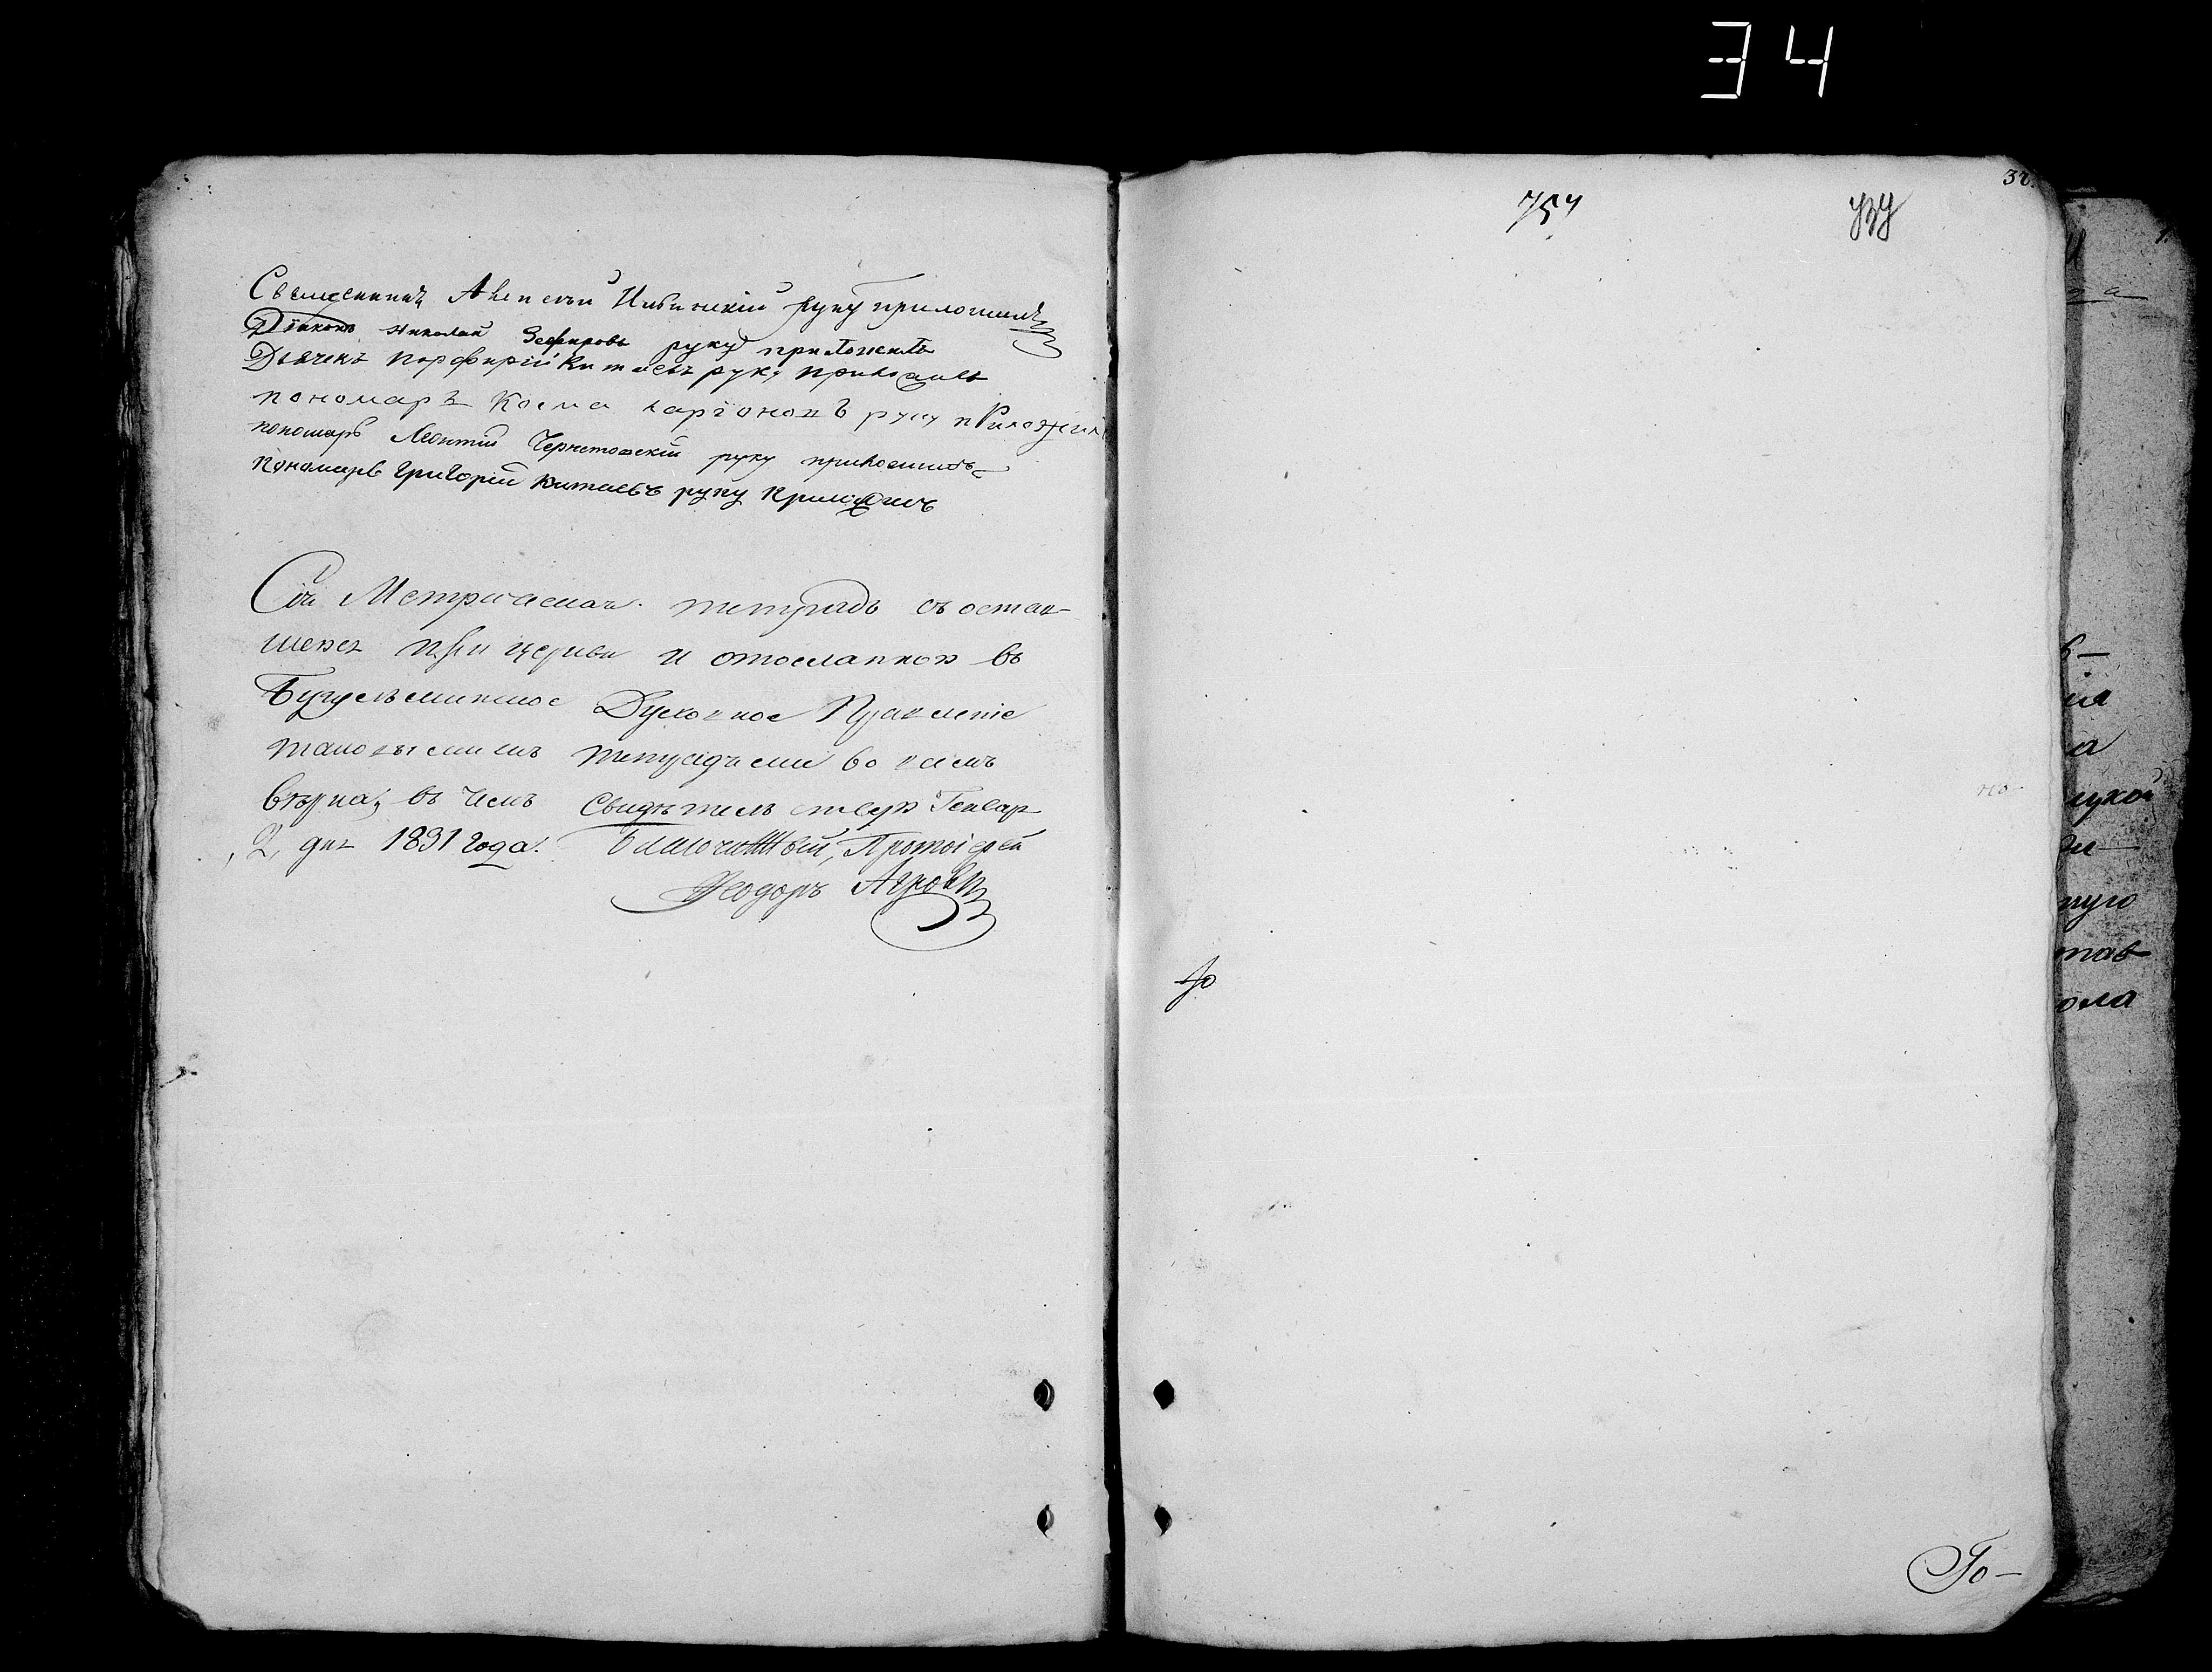 34
Священникъ Алексѣй Ильинскій руку приложилъ
Діаконъ Николай Зефировъ руку приложилъ
Дьячекъ Порфирій Китаевъ руку приложилъ
пономарь Косма Ларіоновъ руку приложилъ
пономарь Леонтій руку приложилъ
Пономарь Григорій Китаевъ руку приложилъ
Сія Метрическая тетрадь съ остав-
шеюся при церкви и отосланною въ
Бугульминское Духовное Правленіе
таковыми жъ тетрадьми во всемъ
вѣрна, въ чемъ свидѣтельствую Генвар
2, дня 1831 года. Благочинный, Протоіерей
Ѳеодоръ
757
го
Го-